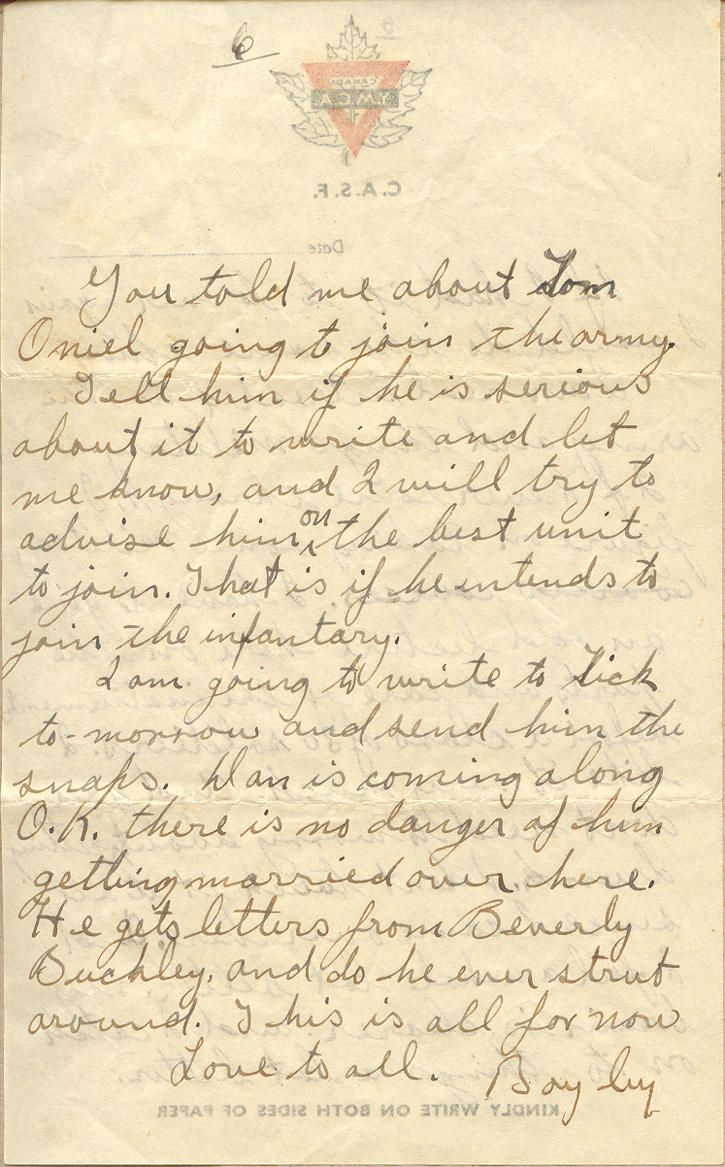 6
CANADA
Y.M.C.A.
C.A.S.F.
Date
You told me about Tom
Oniel going to join the army.
Tell him if he is serious
about it to write and let
me know, and I will try to
advise him on the best unit
to join. That is if he intends to
join the infantary.
I am going to write to Dick
to-morrow and send him the
snaps. Dan is coming along
O.K. there is no danger of him
getting married over here.
He gets letters from Beverly
Buckley, and do he ever strut
around. This is all for now
Love to all. Bay by
KINDLY WRITE ON BOTH SIDES OF PAPER